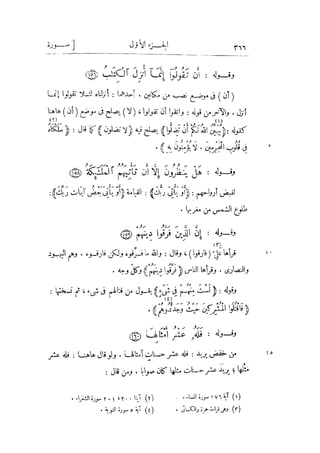 ٣٦٦ الجزء الأول [ ســورة
وقــوله : أَن تَقُولُوٓا۟ إِنَّمَآ أُنزِلَ ٱلْكِتَٰبُ (١٥٦)
(أن) فى موضع نصب من مكانين . أحدهما : أنزلناه لئلا تقولوا إنمــا
أنزل . والآخر من قوله : واتقوا أن تقولوا ، (لا) يصلح فى موضع (أن) هاهنا
كقــوله : (يُبَيِّنُ اللهُ لَكُمْ أَن تَضِلُّوا)(١) يصلح فيه (لا تضلون) كما قال : (سَلَكْنَاهُ
٥ فِى قُلُوبِ الْمُجْرِمِينَ . لَا يُؤْمِنُونَ بِهِ)(٢) .
وقــوله : هَلْ يَنظُرُونَ إِلَّآ أَن تَأْتِيَهُمُ ٱلْمَلَٰٓئِكَةُ (١٥٨)
لقبض أرواحهم : (أَوْ يَأْتِىَ رَبُّكَ) : القيامة (أَوْ يَأْتِىَ بَعْضُ آيَاتِ رَبِّكَ) :
طلوع الشمس من مغربها .
وقــوله : إِنَّ ٱلَّذِينَ فَرَّقُوا۟ دِينَهُمْ (١٥٩)
١٠ قرأها علىّ (فارقوا)(٣) ، وقال : والله ما فرّقوه ولكن فارقوه . وهم اليهــود
والنصارى . وقرأها الناس (فَرَّقُوا دِينَهُمْ) وكلٌّ وجه .
وقوله : (لَسْتَ مِنْهُــمْ فِى شَىْءٍ) يقــول من قتالهم فى شىء ، ثم نسختها :
(فَاقْتُلُوا الْمُشْرِكِينَ حَيْثُ وَجَدْتُمُوهُمْ)(٤) .
وقــوله : فَلَهُۥ عَشْرُ أَمْثَالِهَا (١٦٠)
١٥ من خفض يريد : فله عشر حسنات أمثالهــا . ولو قال هاهنــا : فله عشر
مثلها ؛ يريد عشر حسنات مثلها كان صوابا . ومن قال :
(١) آية ١٧٦ سورة النساء . (٢) آيتا ٢٠٠ ، ٢٠١ سورة الشعراء .
(٣) وهى قراءة حمزة والكسائى . (٤) آية ٥ سورة التوبة .